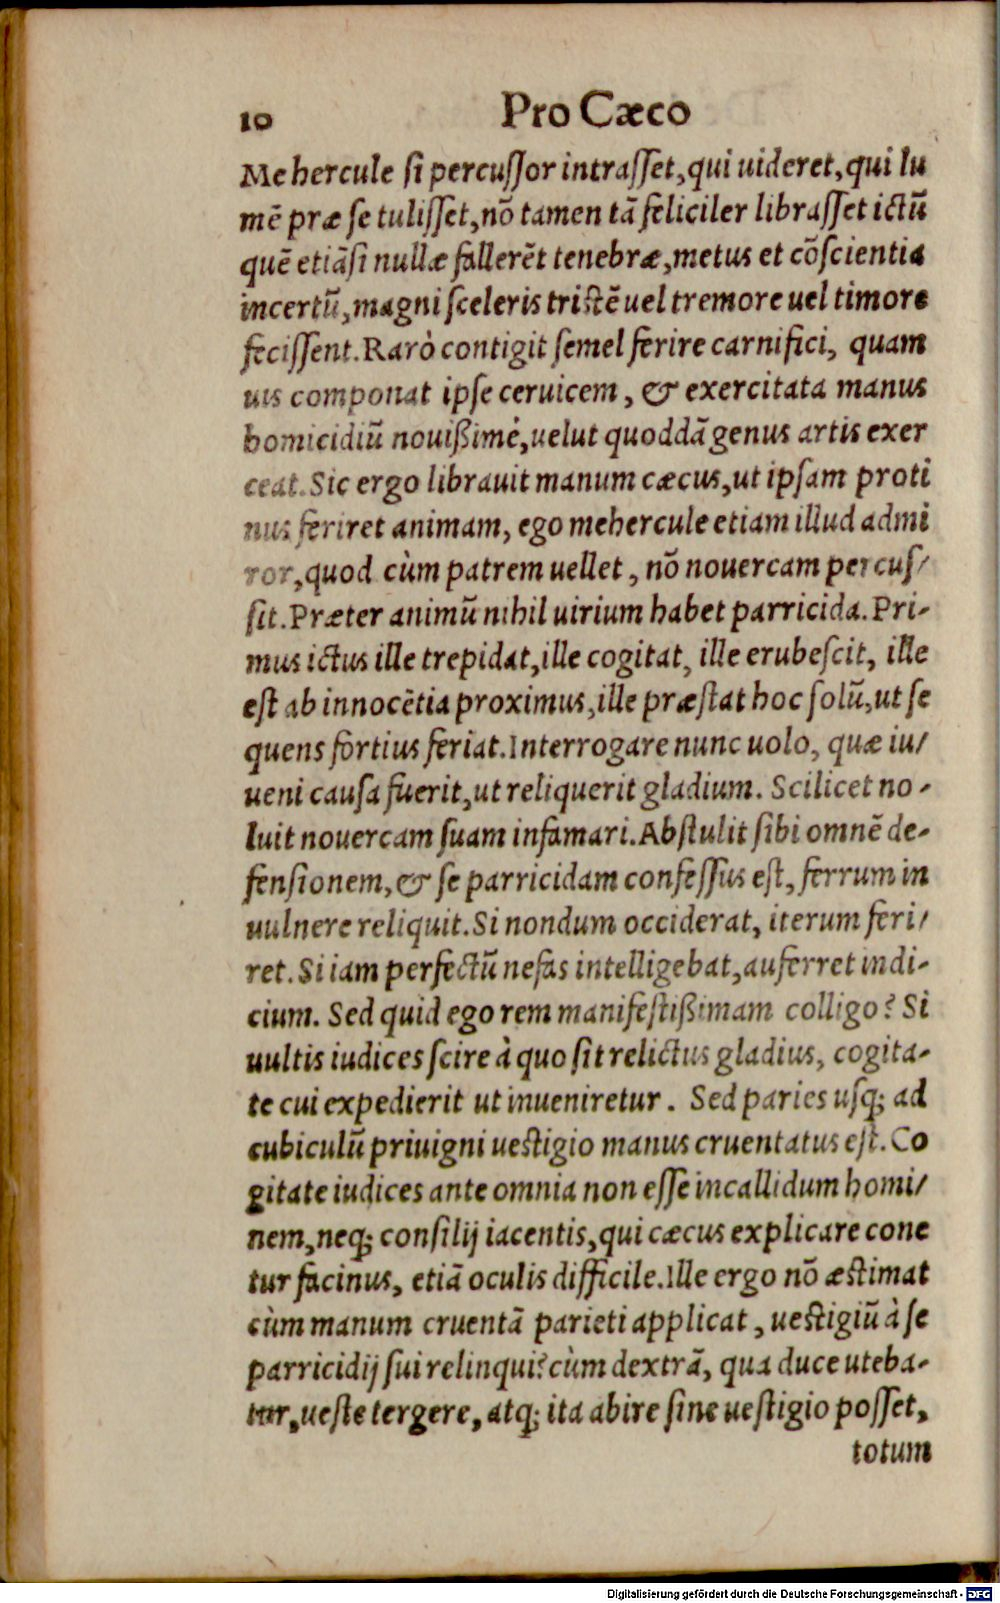 10 Pro Cæco
Me hercule ſi percuſſor intraſſet, qui uideret, qui lu
mē præ ſe tuliſſet, nō tamen tā feliciler libraſſet ictū
quē etiāſi nullæ fallerēt tenebræ, metus et cōſcientia
incertū, magni ſceleris triſtē uel tremore uel timore
feciſſent. Rarò contigit ſemel ferire carnifici, quam
uis componat ipſe ceruicem, & exercitata manus
homicidiū nouißimè, uelut quoddā genus artis exer
ceat. Sic ergo librauit manum cæcus, ut ipſam proti
nus feriret animam, ego mehercule etiam illud admi
ror, quod cùm patrem uellet, nō nouercam percuſ/
ſit. Præter animū nihil uirium habet parricida. Pri-
mus ictus ille trepidat, ille cogitat, ille erubeſcit, ille
eſt ab innocētia proximus, ille præſtat hoc ſolū, ut ſe
quens fortius feriat. Interrogare nunc uolo, quæ iu/
ueni cauſa fuerit, ut reliquerit gladium. Scilicet no-
luit nouercam ſuam infamari. Abſtulit ſibi omnē de-
fenſionem, & ſe parricidam confeſſus eſt, ferrum in
uulnere reliquit. Si nondum occiderat, iterum feri/
ret. Si iam perfectū nefas intelligebat, auferret indi-
cium. Sed quid ego rem manifeſtißimam colligo? Si
uultis iudices ſcire à quo ſit relictus gladius, cogita-
te cui expedierit ut inueniretur. Sed paries uſq; ad
cubiculū priuigni ueſtigio manus cruentatus eſt. Co
gitate iudices ante omnia non eſſe incallidum homi/
nem, neq; conſilij iacentis, qui cæcus explicare cone
tur facinus, etiā oculis difficile. Ille ergo nō æſtimat
cùm manum cruentā parieti applicat, ueſtigiū à ſe
parricidij ſui relinqui? cùm dextrā, qua duce uteba-
tur, ueſte tergere, atq; ita abire ſine ueſtigio poſſet,
totum
Digitalisierung gefördert durch die Deutsche Forschungsgemeinschaft - DFG